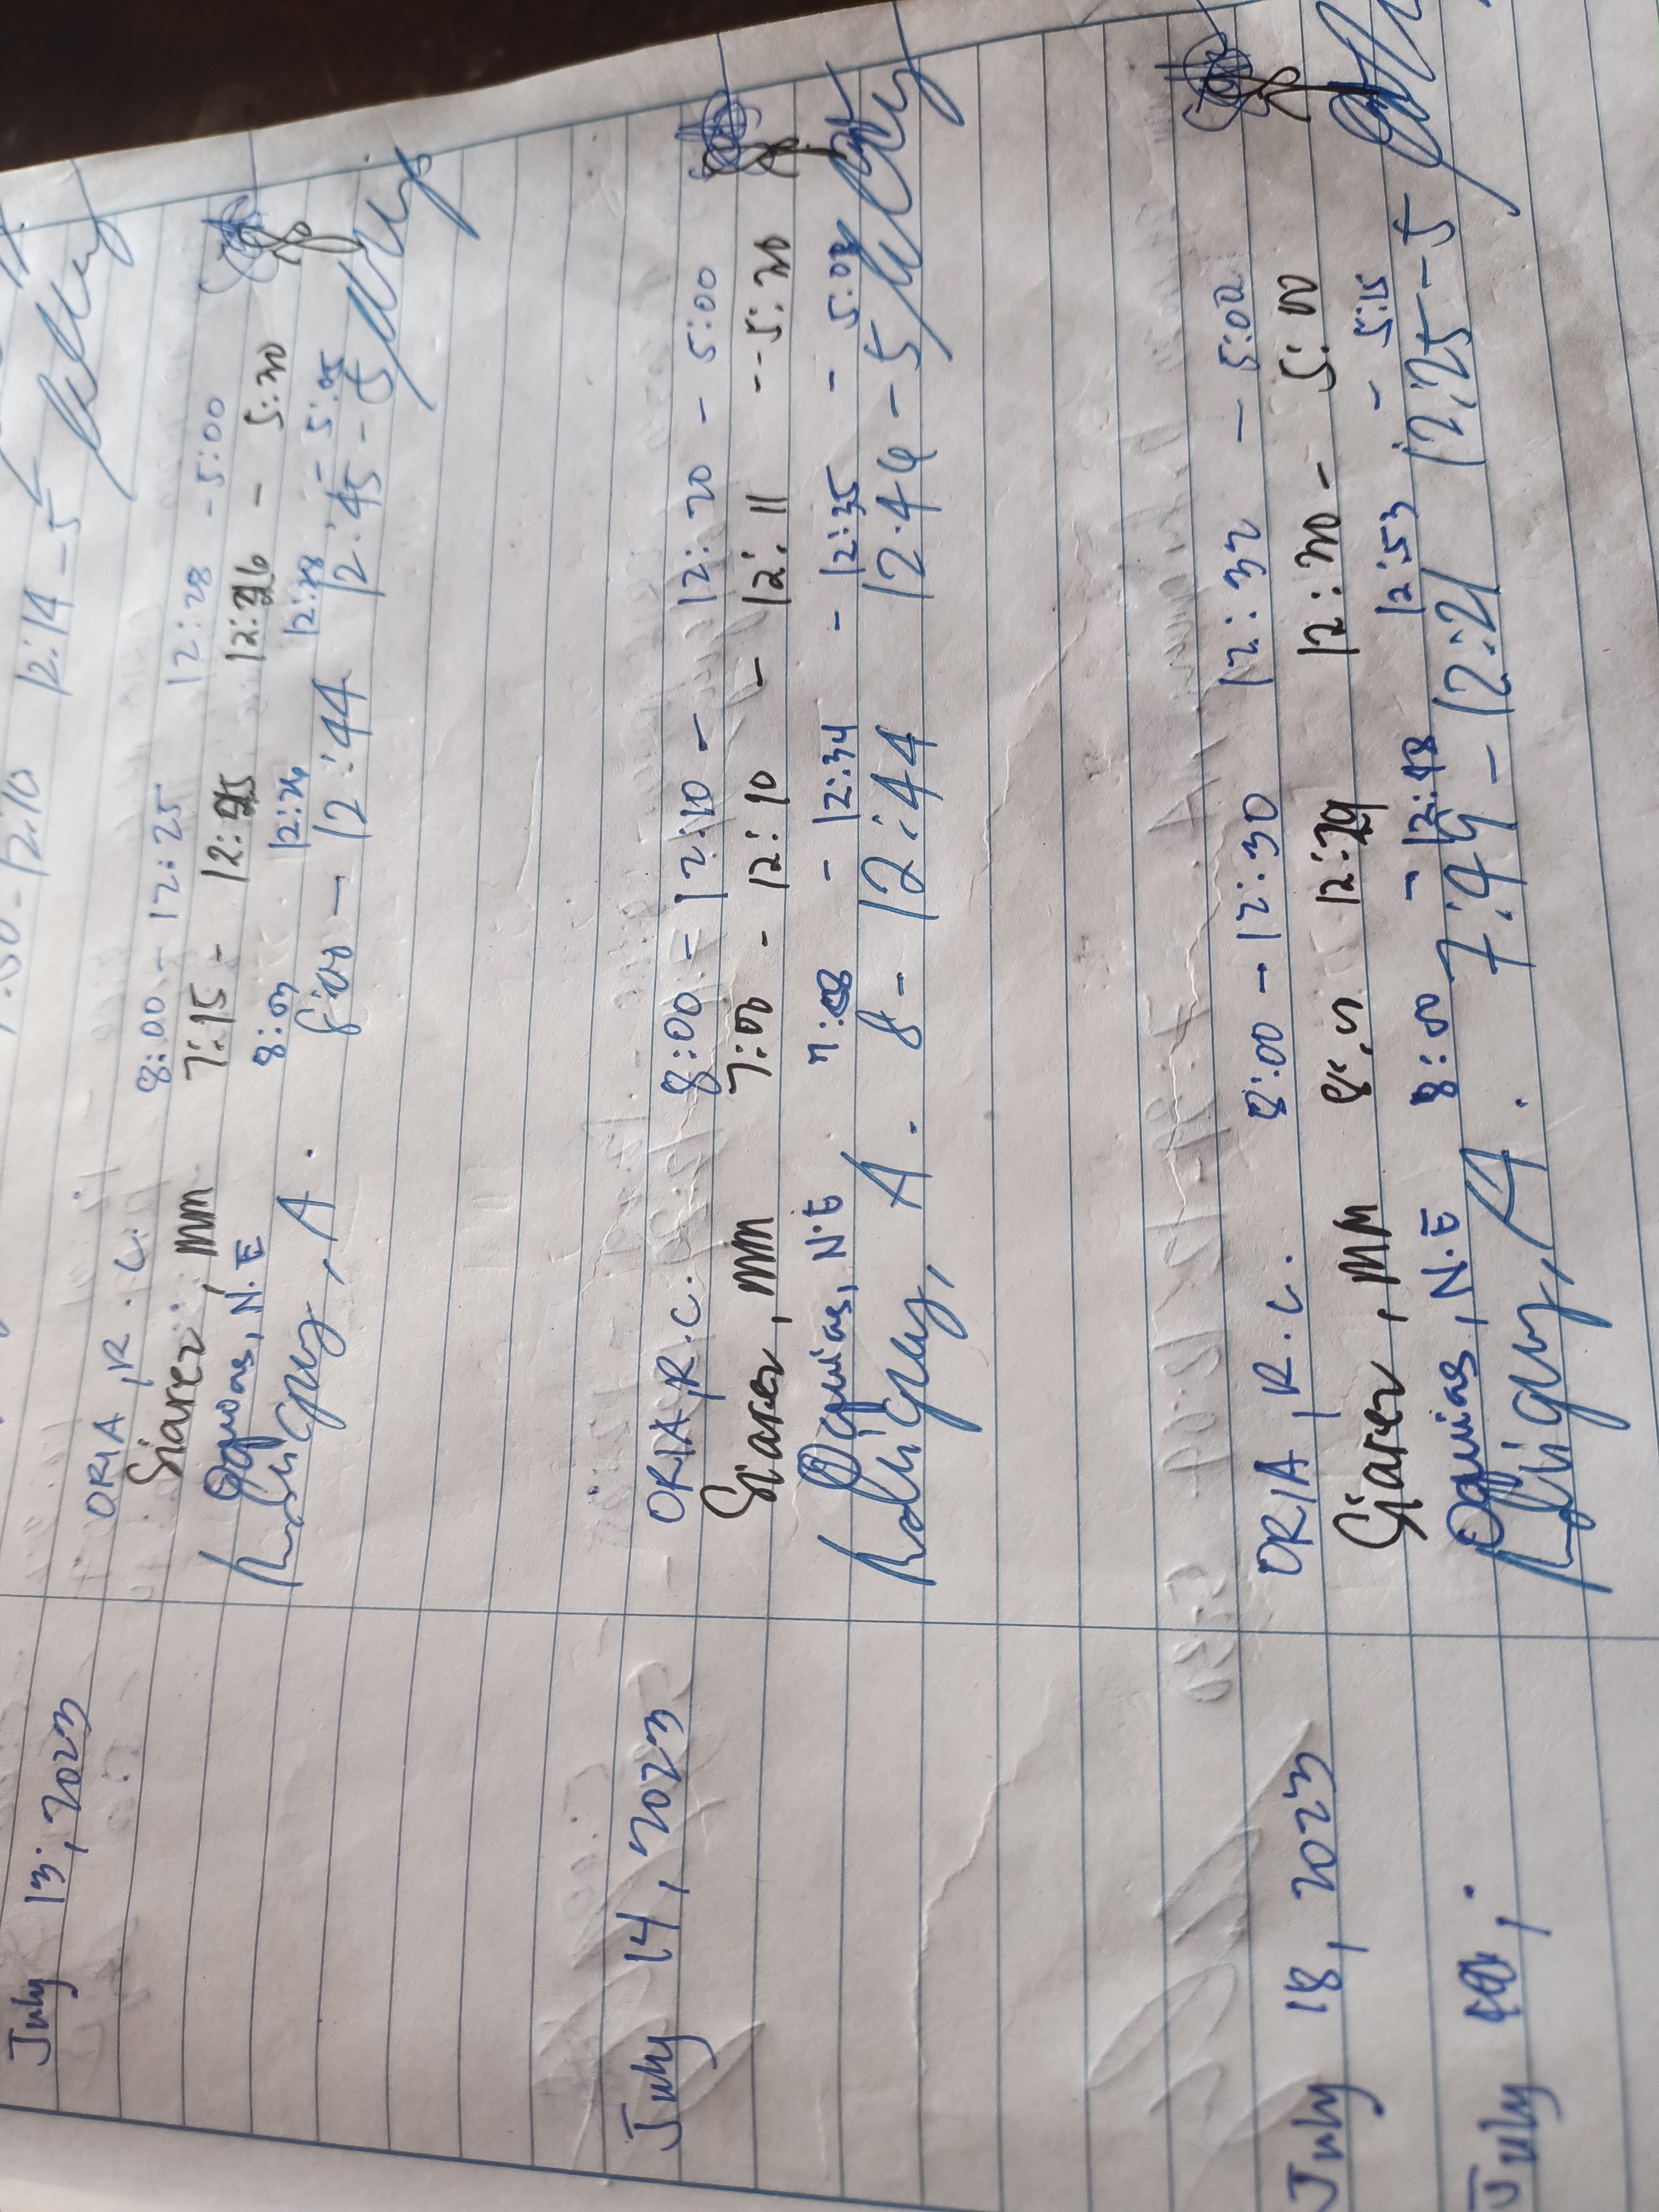 12:10 12:14 - 5
July 13, 2023
ORIA, R.C. 8:00 - 12:25 12:28 - 5:00
Siarez, MM 7:15 - 12:25 12:26 - 5:30
Oquias, N.E 8:00 12:26 12:28 - 5:05
A. 8:00 - 12:44 12:45 - 5
July 14, 2023
ORIA, R.C. 8:00 - 12:10 - 12:20 - 5:00
Siarez, MM 7:00 - 12:10 - 12:11 -- 5:30
Oquias, N.E 7:58 - 12:34 - 12:35 - 5:03
A. 8 - 12:44 12:44 - 5
July 18, 2023
ORIA, R.C. 8:00 - 12:30 12:32 - 5:02
Siarez, MM 12:29 12:30 - 5:00
Oquias, N.E 8:00 - 12:48 12:53 - 5:15
A. 7:49 - 12:21 12:25 - 5
July